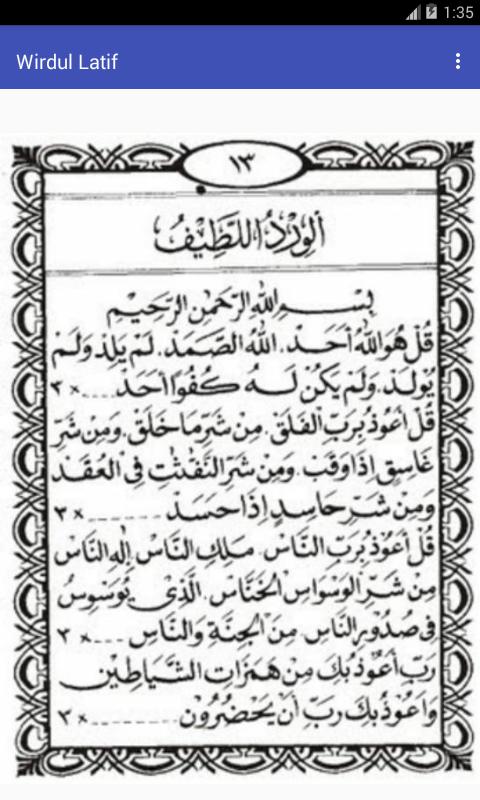 1:35
Wirdul Latif
١٣
اَلْوِرْدُ اللَّطِيْفُ
بِسْمِ اللهِ الرَّحْمٰنِ الرَّحِيْمِ
قُلْ هُوَ اللهُ أَحَدٌ. اَللهُ الصَّمَدُ. لَمْ يَلِدْ وَلَمْ
يُوْلَدْ. وَلَمْ يَكُنْ لَهُ كُفُوًا أَحَدٌ.... × ٣
قُلْ أَعُوْذُ بِرَبِّ الْفَلَقِ. مِنْ شَرِّ مَا خَلَقَ. وَمِنْ شَرِّ
غَاسِقٍ إِذَا وَقَبَ. وَمِنْ شَرِّ النَّفّٰثٰتِ فِى الْعُقَدِ
وَمِنْ شَرِّ حَاسِدٍ إِذَا حَسَدَ ------- × ٣
قُلْ أَعُوْذُ بِرَبِّ النَّاسِ. مَلِكِ النَّاسِ. إِلٰهِ النَّاسِ
مِنْ شَرِّ الْوَسْوَاسِ الْخَنَّاسِ. الَّذِى يُوَسْوِسُ
فِى صُدُوْرِ النَّاسِ. مِنَ الْجِنَّةِ وَالنَّاسِ ---- × ٣
رَبِّ أَعُوْذُ بِكَ مِنْ هَمَزَاتِ الشَّيَاطِيْنِ
وَأَعُوْذُ بِكَ رَبِّ أَنْ يَحْضُرُوْنِ -------- × ٣